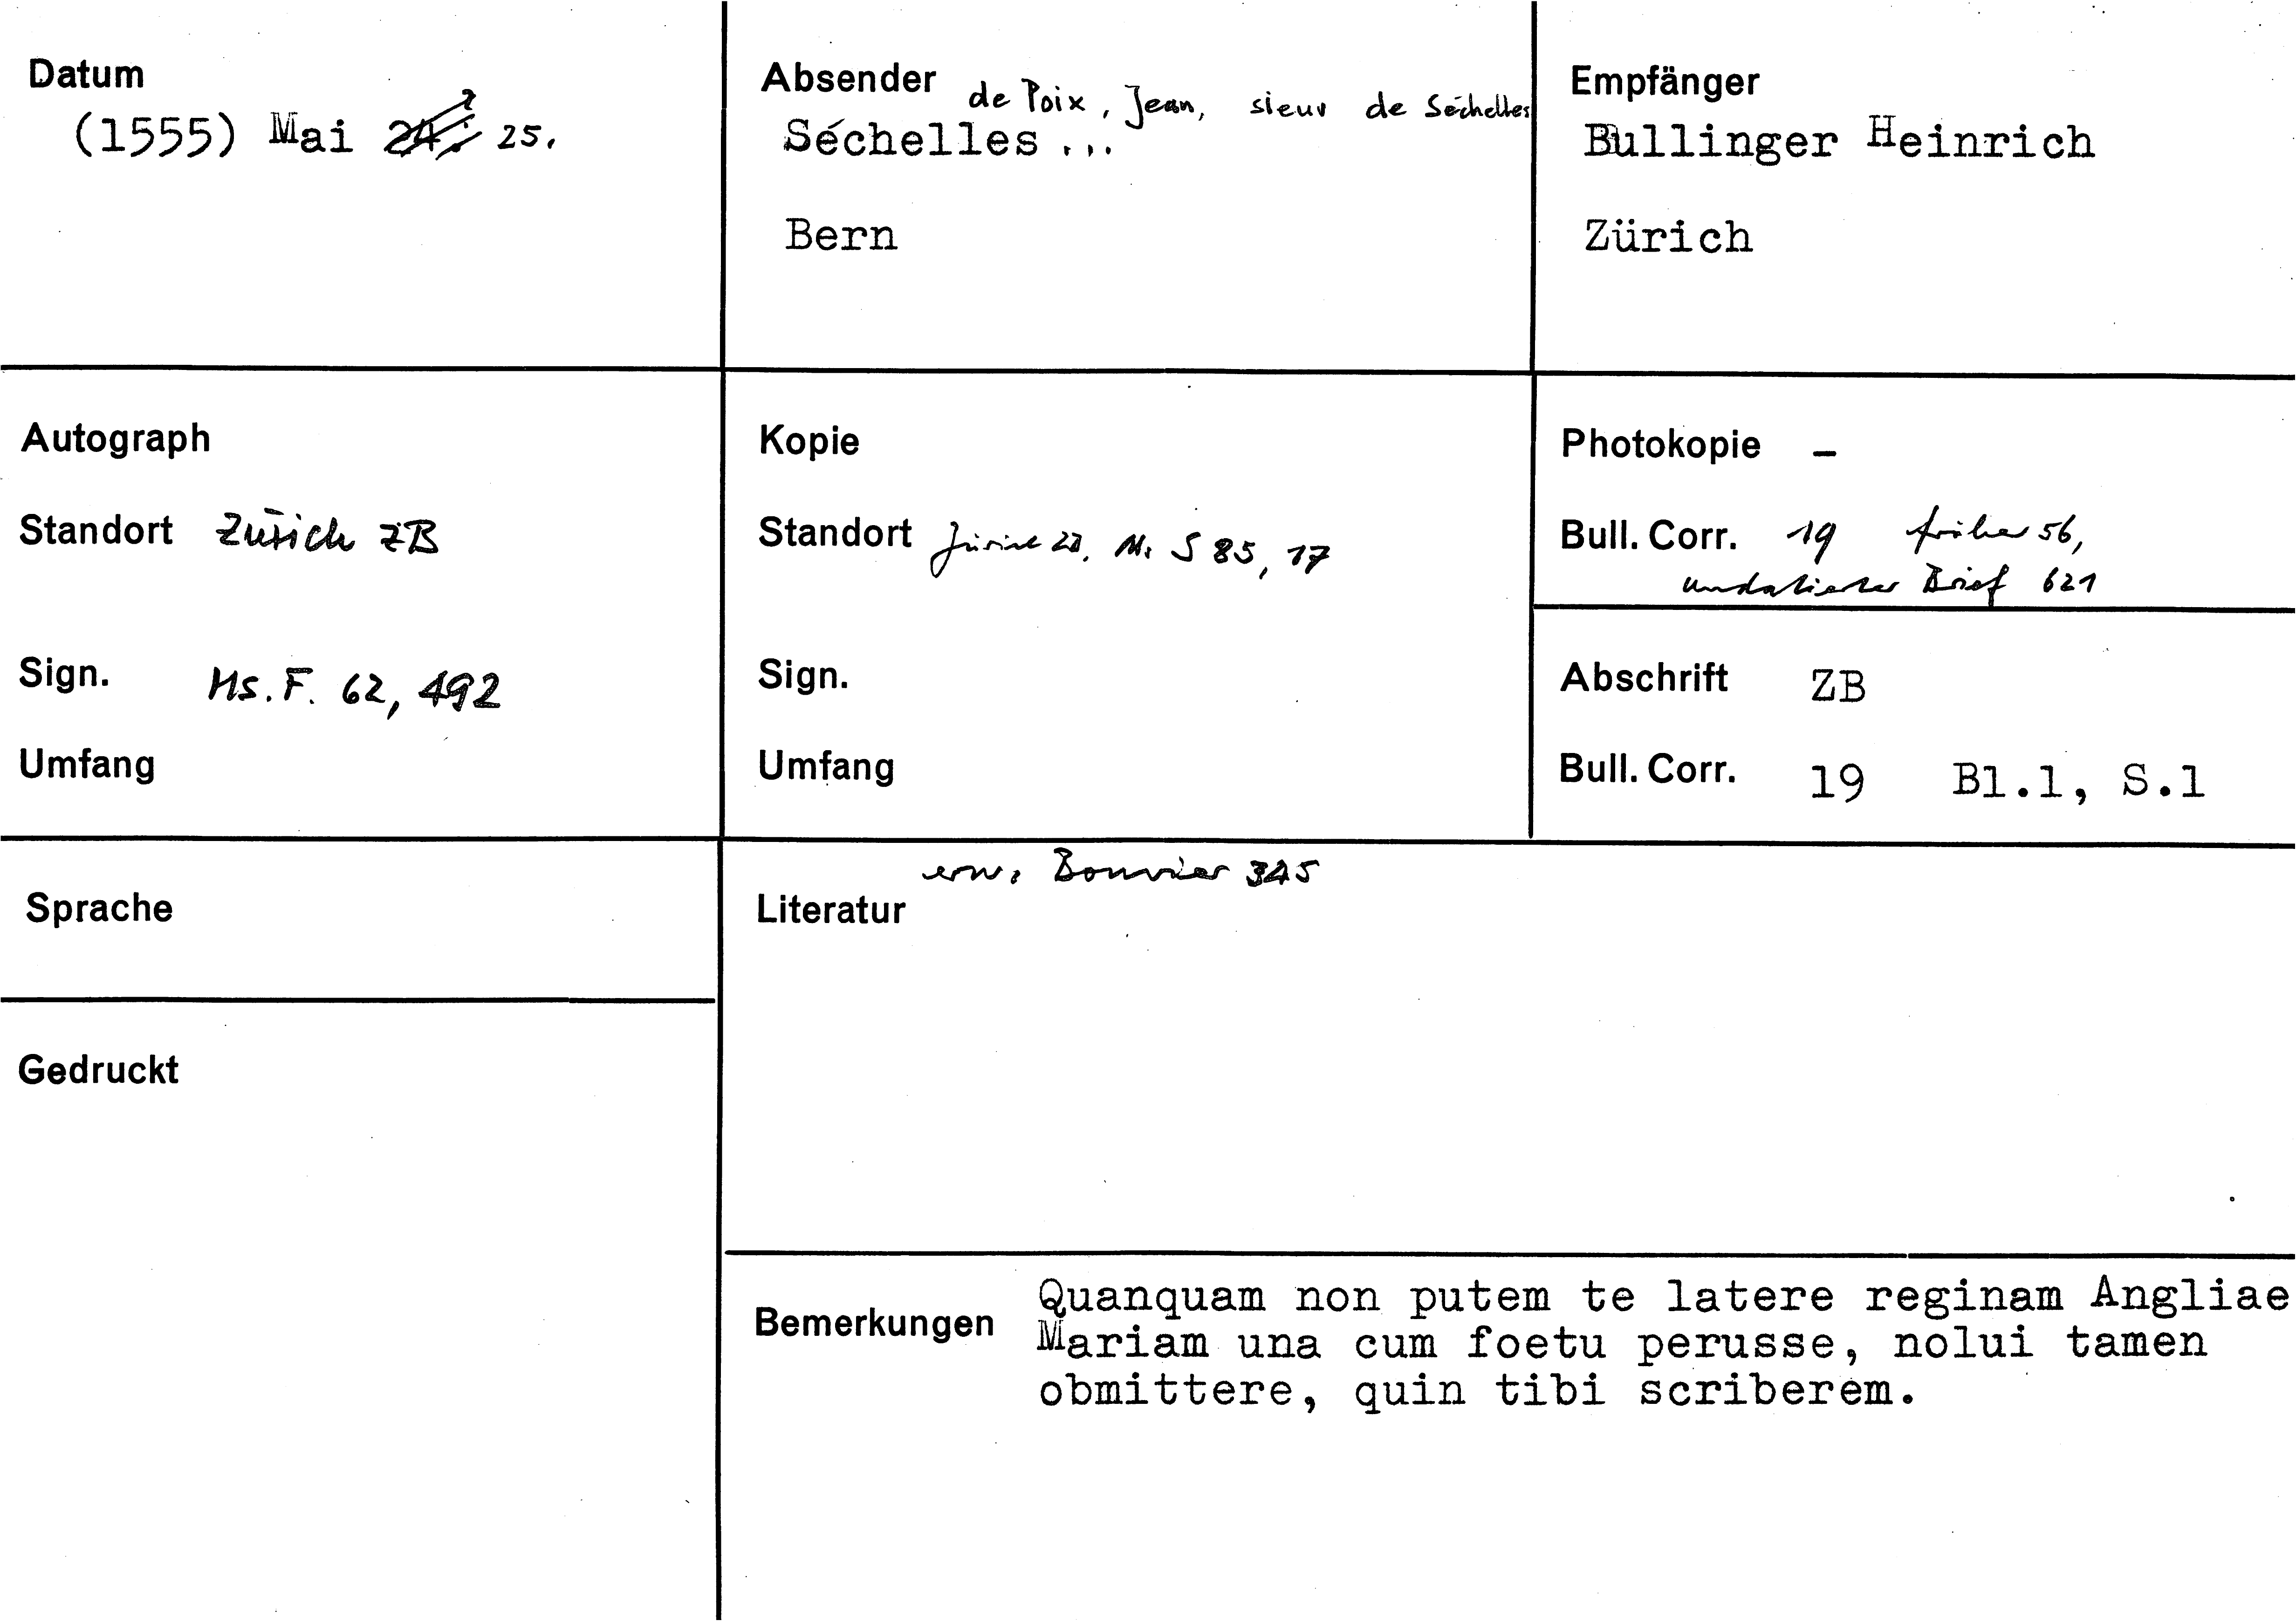 Datum
(1555) Mai 24. ? 25.
Absender de Poix, Jean, sieur de Séchelles
Séchelles ...
Bern
Empfänger
Bullinger Heinrich
Zürich
Autograph
Standort Zürich ZB
Sign. Ms. F. 62, 492
Umfang
Kopie
Standort Zürich ZB, Ms S 85, 17
Sign.
Umfang
Photokopie –
Bull. Corr. 19 früher 56,
undatierter Brief 621
Abschrift ZB
Bull. Corr. 19 Bl.1, S.1
Sprache
Gedruckt
erw. Bouvier 345
Literatur
Bemerkungen Quanquam non putem te latere reginam Angliae
Mariam una cum foetu perusse, nolui tamen
obmittere, quin tibi scriberem.